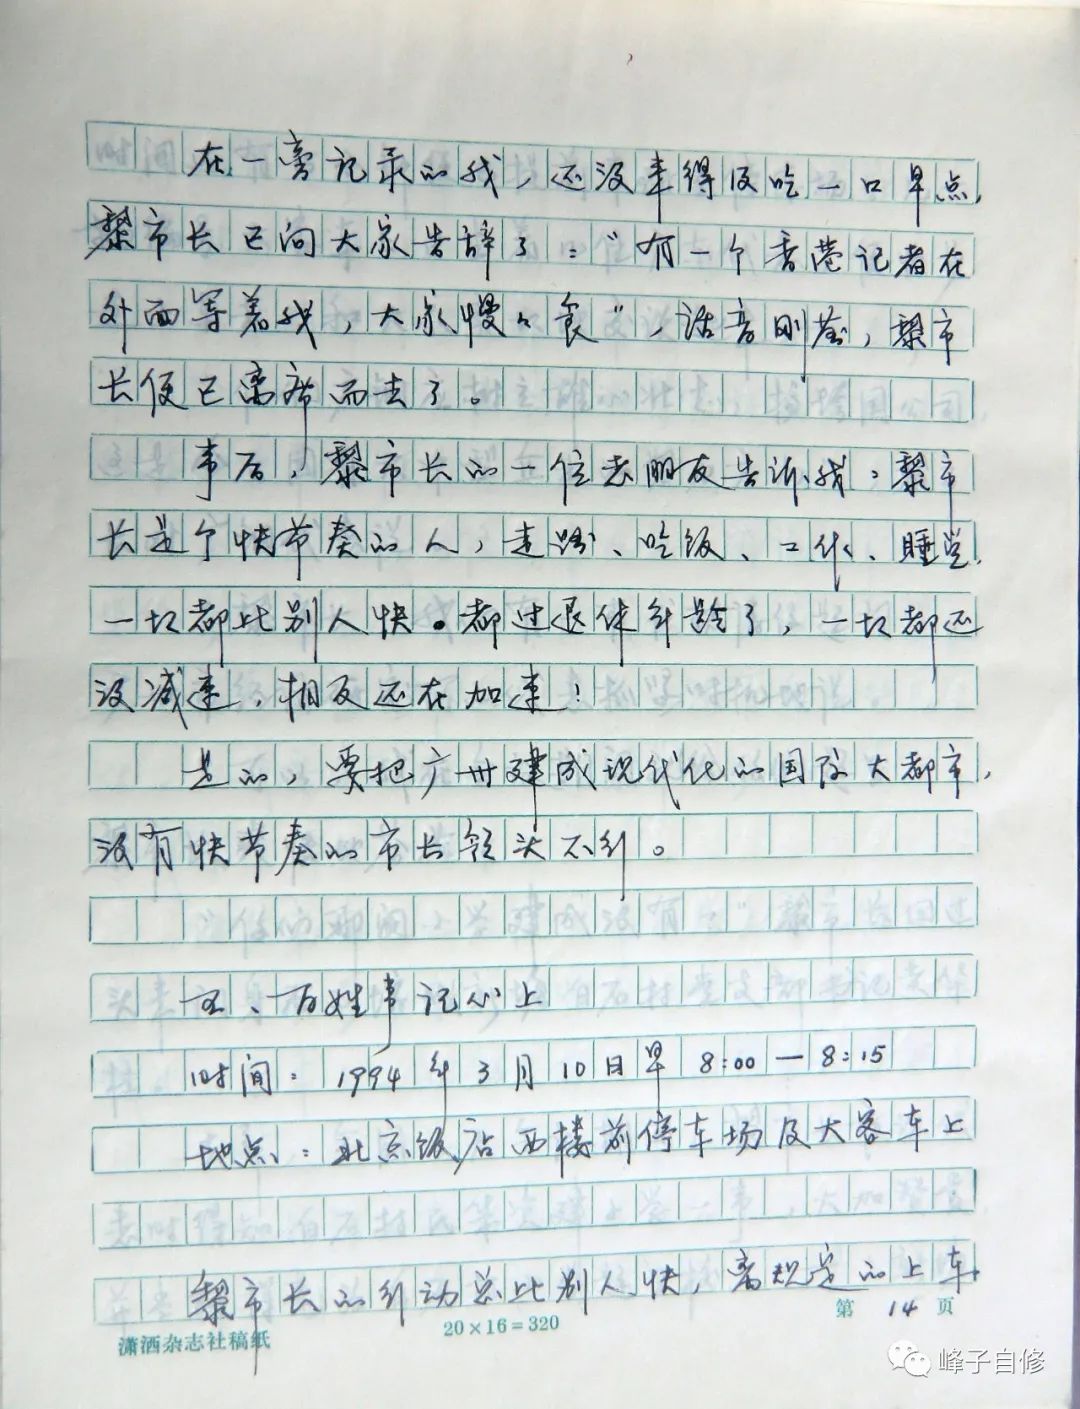 在一旁记录的我，还没来得及吃一口早点，
黎市长已向大家告辞了：“有一个香港记者在
外面等着我，大家慢慢食”，话音刚落，黎市
长便已离席而去了。
事后，黎市长的一位老朋友告诉我：黎市
长是个快节奏的人，走路、吃饭、工作、睡觉，
一切都比别人快。都过退休年龄了，一切都还
没减速，相反还在加速！
是的，要把广州建成现代化的国际大都市，
没有快节奏的市长领头不行。
五、百姓事记心上
时间：1994年3月10日早8:00—8:15
地点：北京饭店西楼前停车场及大客车上
黎市长的行动总比别人快，离规定的上车
第 14 页
20×16=320
潇洒杂志社稿纸
峰子自修